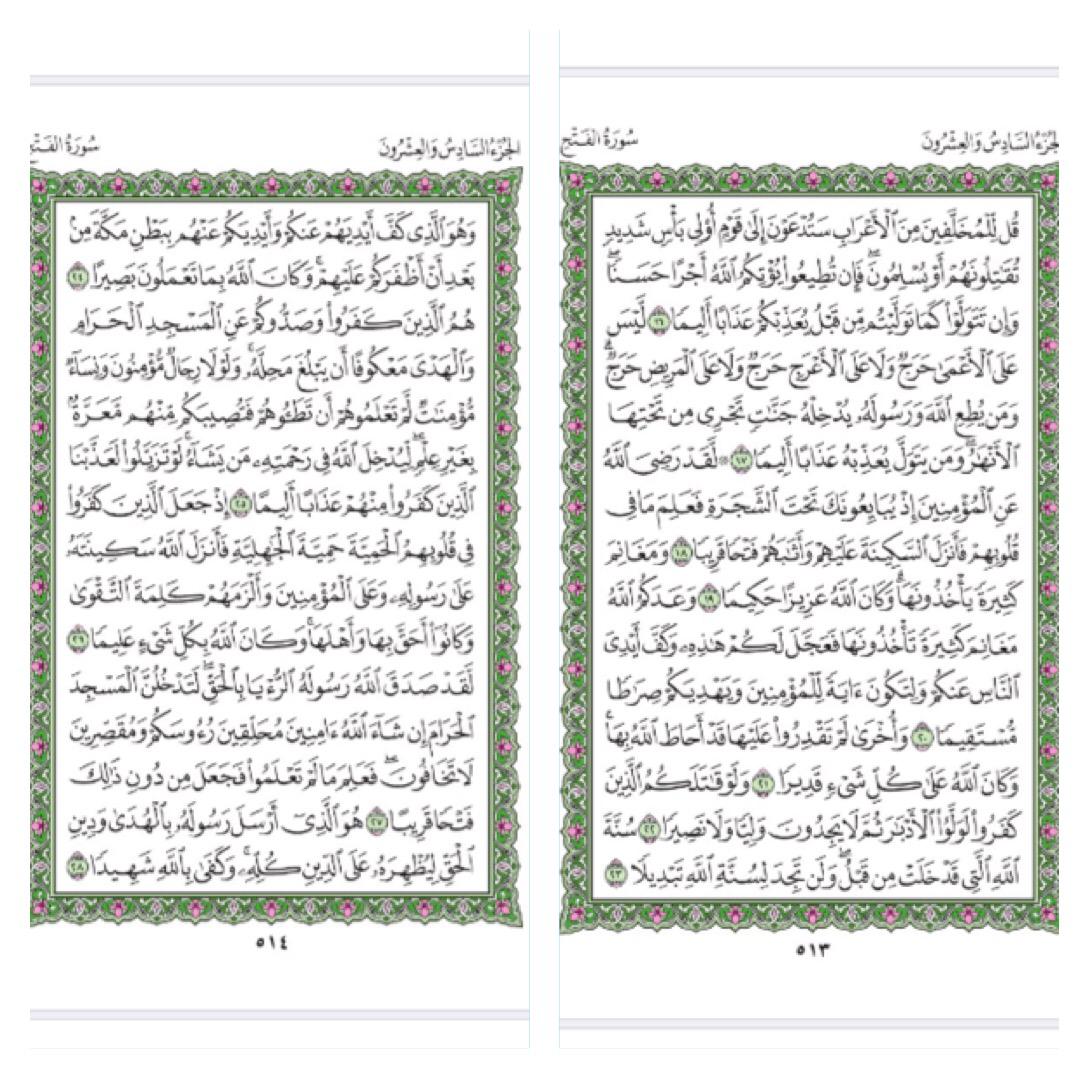 الجُزْءُ السَّادِسُ وَالعِشْرُونَ
سُورَةُ الفَتْحِ
قُل لِّلْمُخَلَّفِينَ مِنَ ٱلْأَعْرَابِ سَتُدْعَوْنَ إِلَىٰ قَوْمٍ أُو۟لِى بَأْسٍ شَدِيدٍ
تُقَـٰتِلُونَهُمْ أَوْ يُسْلِمُونَ ۖ فَإِن تُطِيعُوا۟ يُؤْتِكُمُ ٱللَّهُ أَجْرًا حَسَنًا ۖ
وَإِن تَتَوَلَّوْا۟ كَمَا تَوَلَّيْتُم مِّن قَبْلُ يُعَذِّبْكُمْ عَذَابًا أَلِيمًا ١٦ لَّيْسَ
عَلَى ٱلْأَعْمَىٰ حَرَجٌ وَلَا عَلَى ٱلْأَعْرَجِ حَرَجٌ وَلَا عَلَى ٱلْمَرِيضِ حَرَجٌ ۗ
وَمَن يُطِعِ ٱللَّهَ وَرَسُولَهُۥ يُدْخِلْهُ جَنَّـٰتٍ تَجْرِى مِن تَحْتِهَا
ٱلْأَنْهَـٰرُ ۖ وَمَن يَتَوَلَّ يُعَذِّبْهُ عَذَابًا أَلِيمًا ١٧ ۞ لَّقَدْ رَضِىَ ٱللَّهُ
عَنِ ٱلْمُؤْمِنِينَ إِذْ يُبَايِعُونَكَ تَحْتَ ٱلشَّجَرَةِ فَعَلِمَ مَا فِى
قُلُوبِهِمْ فَأَنزَلَ ٱلسَّكِينَةَ عَلَيْهِمْ وَأَثَـٰبَهُمْ فَتْحًا قَرِيبًا ١٨ وَمَغَانِمَ
كَثِيرَةً يَأْخُذُونَهَا ۗ وَكَانَ ٱللَّهُ عَزِيزًا حَكِيمًا ١٩ وَعَدَكُمُ ٱللَّهُ
مَغَانِمَ كَثِيرَةً تَأْخُذُونَهَا فَعَجَّلَ لَكُمْ هَـٰذِهِۦ وَكَفَّ أَيْدِىَ
ٱلنَّاسِ عَنكُمْ وَلِتَكُونَ ءَايَةً لِّلْمُؤْمِنِينَ وَيَهْدِيَكُمْ صِرَٰطًا
مُّسْتَقِيمًا ٢٠ وَأُخْرَىٰ لَمْ تَقْدِرُوا۟ عَلَيْهَا قَدْ أَحَاطَ ٱللَّهُ بِهَا ۚ
وَكَانَ ٱللَّهُ عَلَىٰ كُلِّ شَىْءٍ قَدِيرًا ٢١ وَلَوْ قَـٰتَلَكُمُ ٱلَّذِينَ
كَفَرُوا۟ لَوَلَّوُا۟ ٱلْأَدْبَـٰرَ ثُمَّ لَا يَجِدُونَ وَلِيًّا وَلَا نَصِيرًا ٢٢ سُنَّةَ
ٱللَّهِ ٱلَّتِى قَدْ خَلَتْ مِن قَبْلُ ۖ وَلَن تَجِدَ لِسُنَّةِ ٱللَّهِ تَبْدِيلًا ٢٣
٥١٣
الجُزْءُ السَّادِسُ وَالعِشْرُونَ
سُورَةُ الفَتْحِ
وَهُوَ ٱلَّذِى كَفَّ أَيْدِيَهُمْ عَنكُمْ وَأَيْدِيَكُمْ عَنْهُم بِبَطْنِ مَكَّةَ مِنۢ
بَعْدِ أَنْ أَظْفَرَكُمْ عَلَيْهِمْ ۚ وَكَانَ ٱللَّهُ بِمَا تَعْمَلُونَ بَصِيرًا ٢٤
هُمُ ٱلَّذِينَ كَفَرُوا۟ وَصَدُّوكُمْ عَنِ ٱلْمَسْجِدِ ٱلْحَرَامِ
وَٱلْهَدْىَ مَعْكُوفًا أَن يَبْلُغَ مَحِلَّهُۥ ۚ وَلَوْلَا رِجَالٌ مُّؤْمِنُونَ وَنِسَآءٌ
مُّؤْمِنَـٰتٌ لَّمْ تَعْلَمُوهُمْ أَن تَطَـُٔوهُمْ فَتُصِيبَكُم مِّنْهُم مَّعَرَّةٌۢ
بِغَيْرِ عِلْمٍ ۖ لِّيُدْخِلَ ٱللَّهُ فِى رَحْمَتِهِۦ مَن يَشَآءُ ۚ لَوْ تَزَيَّلُوا۟ لَعَذَّبْنَا
ٱلَّذِينَ كَفَرُوا۟ مِنْهُمْ عَذَابًا أَلِيمًا ٢٥ إِذْ جَعَلَ ٱلَّذِينَ كَفَرُوا۟
فِى قُلُوبِهِمُ ٱلْحَمِيَّةَ حَمِيَّةَ ٱلْجَـٰهِلِيَّةِ فَأَنزَلَ ٱللَّهُ سَكِينَتَهُۥ
عَلَىٰ رَسُولِهِۦ وَعَلَى ٱلْمُؤْمِنِينَ وَأَلْزَمَهُمْ كَلِمَةَ ٱلتَّقْوَىٰ
وَكَانُوٓا۟ أَحَقَّ بِهَا وَأَهْلَهَا ۚ وَكَانَ ٱللَّهُ بِكُلِّ شَىْءٍ عَلِيمًا ٢٦
لَّقَدْ صَدَقَ ٱللَّهُ رَسُولَهُ ٱلرُّءْيَا بِٱلْحَقِّ ۖ لَتَدْخُلُنَّ ٱلْمَسْجِدَ
ٱلْحَرَامَ إِن شَآءَ ٱللَّهُ ءَامِنِينَ مُحَلِّقِينَ رُءُوسَكُمْ وَمُقَصِّرِينَ
لَا تَخَافُونَ ۖ فَعَلِمَ مَا لَمْ تَعْلَمُوا۟ فَجَعَلَ مِن دُونِ ذَٰلِكَ
فَتْحًا قَرِيبًا ٢٧ هُوَ ٱلَّذِىٓ أَرْسَلَ رَسُولَهُۥ بِٱلْهُدَىٰ وَدِينِ
ٱلْحَقِّ لِيُظْهِرَهُۥ عَلَى ٱلدِّينِ كُلِّهِۦ ۚ وَكَفَىٰ بِٱللَّهِ شَهِيدًا ٢٨
٥١٤